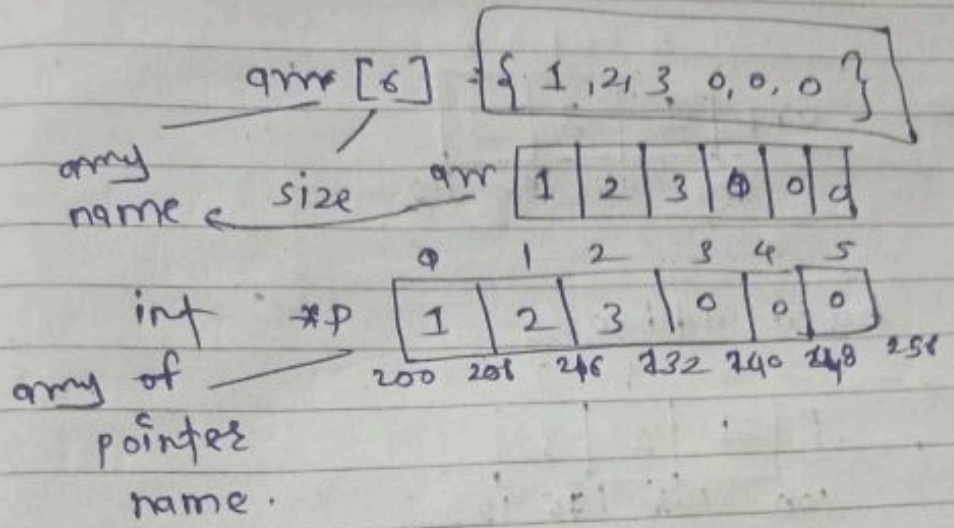 arr [6] = { 1, 2, 3, 0, 0, 0 }
array name
size
arr 1 2 3 0 0 0
0 1 2 3 4 5
int *p 1 2 3 0 0 0
200 208 216 232 240 248 256
array of
pointer
name.